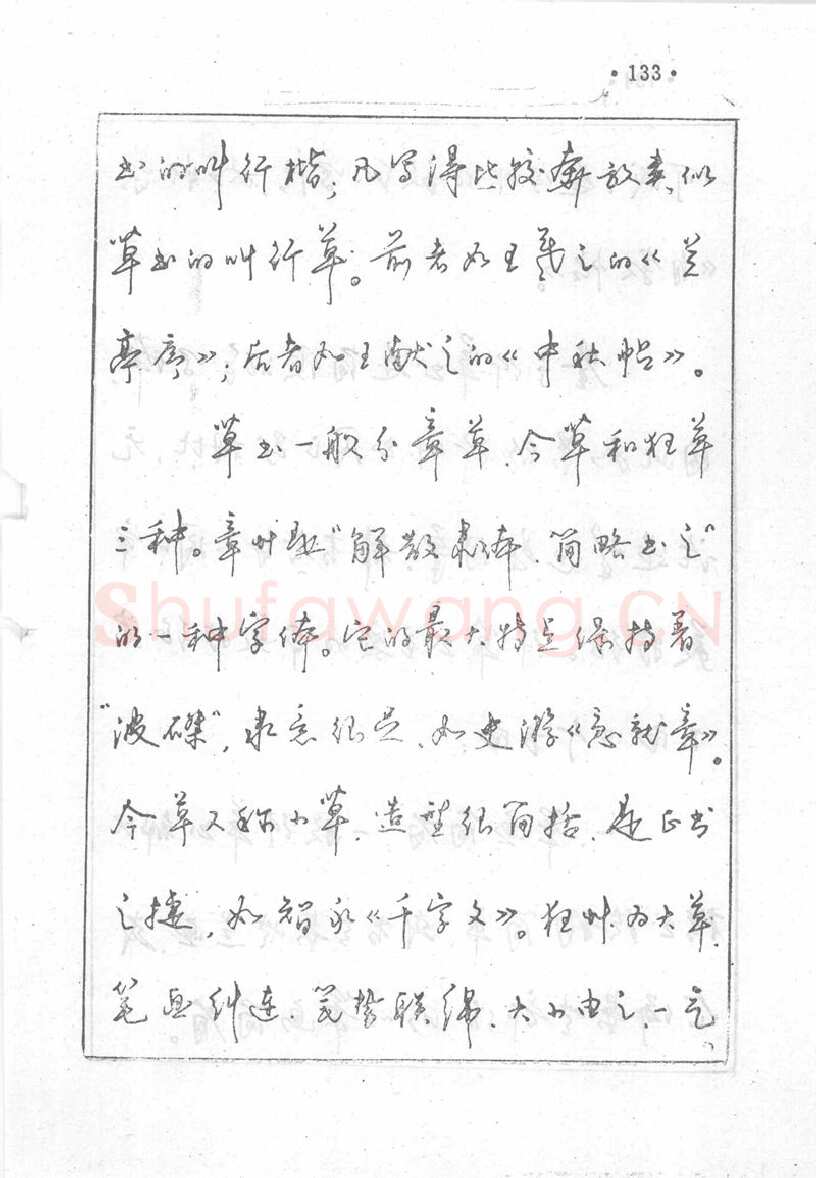 ·133·
书的叫行楷；凡写得比较奔放类似
草书的叫行草。前者如王羲之的《兰
亭序》；后者如王献之的《中秋帖》。
草书一般分章草、今草和狂草
三种。章草是“解散隶体、简略书之”
Shufawang.CN
的一种字体。它的最大特点保持着
“波磔”，隶意很足、如史游《急就章》。
今草又称小草，造型很简括，是正书
之捷，如智永《千字文》。狂草为大草，
笔画纠连、笔势联绵、大小由之、一气